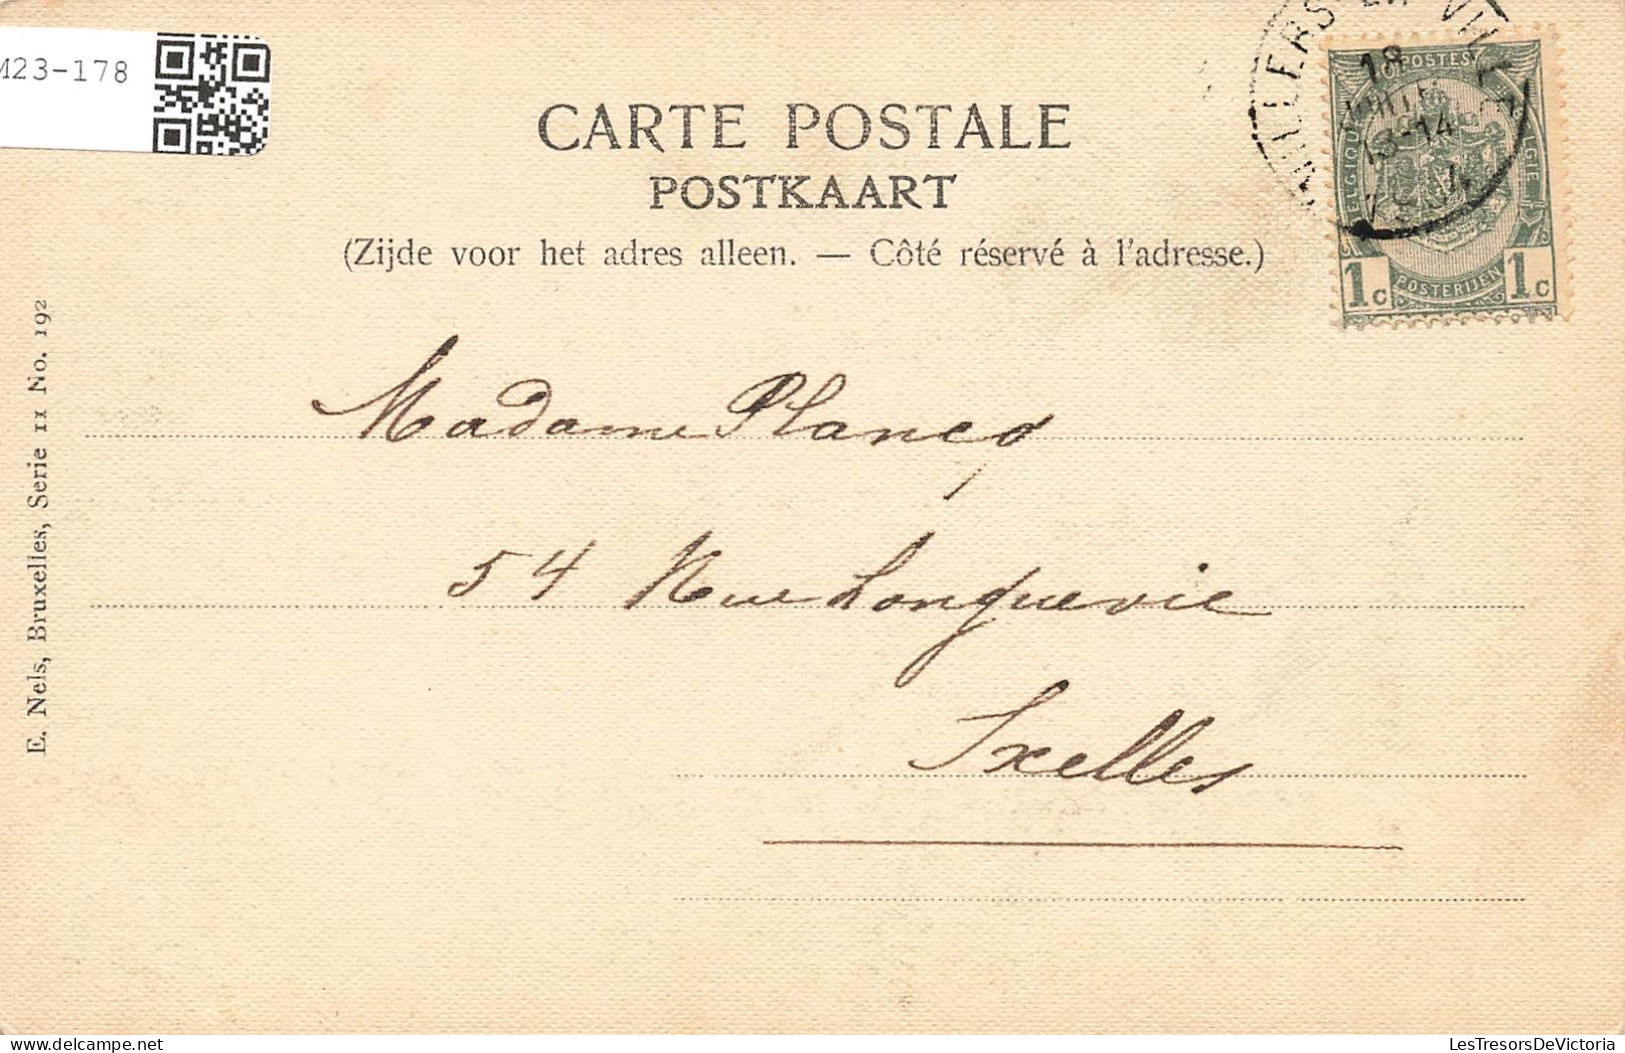 M23-178
CARTE POSTALE
POSTKAART
(Zijde voor het adres alleen. — Côté réservé à l'adresse.)
VILLERS-LA-VILLE
18
13-14
POSTES
BELGIQUE
BELGIE
1c
POSTERIJEN
1c
E. Nels, Bruxelles, Serie 11 No. 192
Madame Plancq
54 Rue Longuevie
Ixelles
LesTresorsDeVictoria
delcampe.net